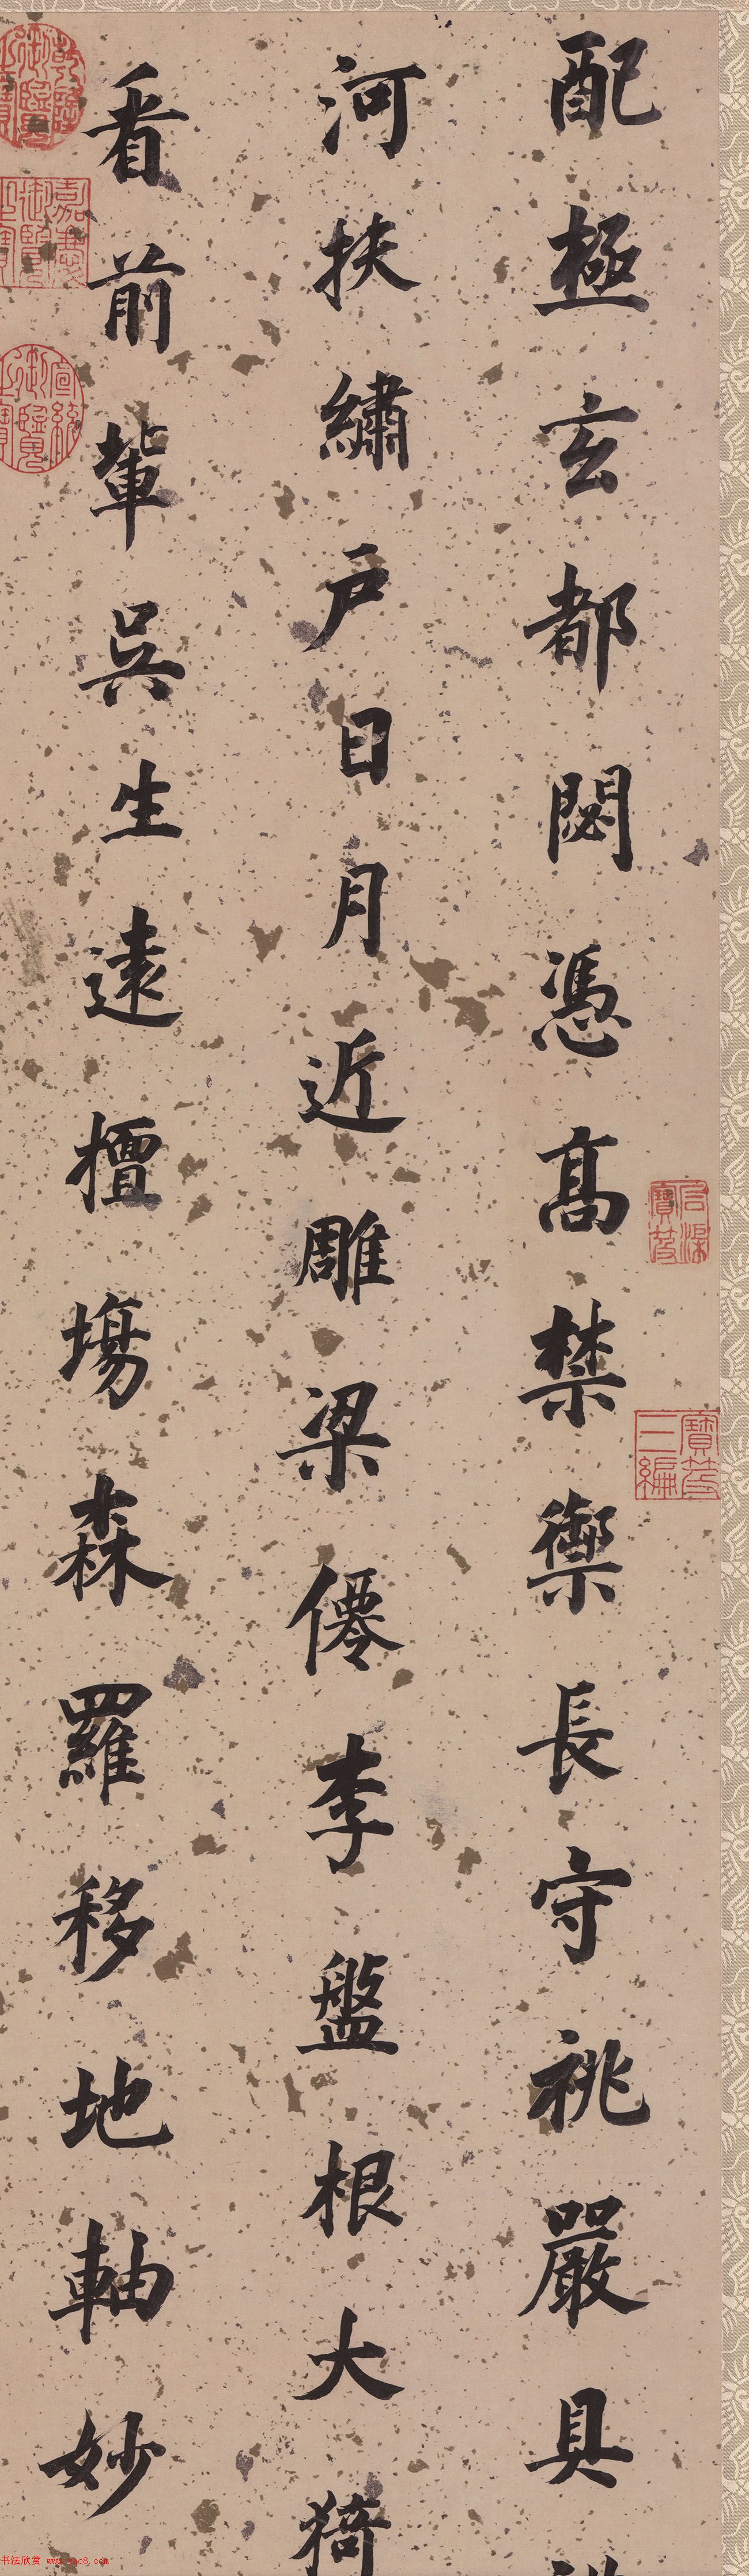 配極玄都閟憑高禁禦長守祧嚴具
河扶繡戶日月近雕梁僊李盤根大猗
看前輩吳生遠擅塲森羅移地軸妙
石渠寶笈
寶笈三編
乾隆御覽之寶
嘉慶御覽之寶
宣統御覽之寶
书法欣赏